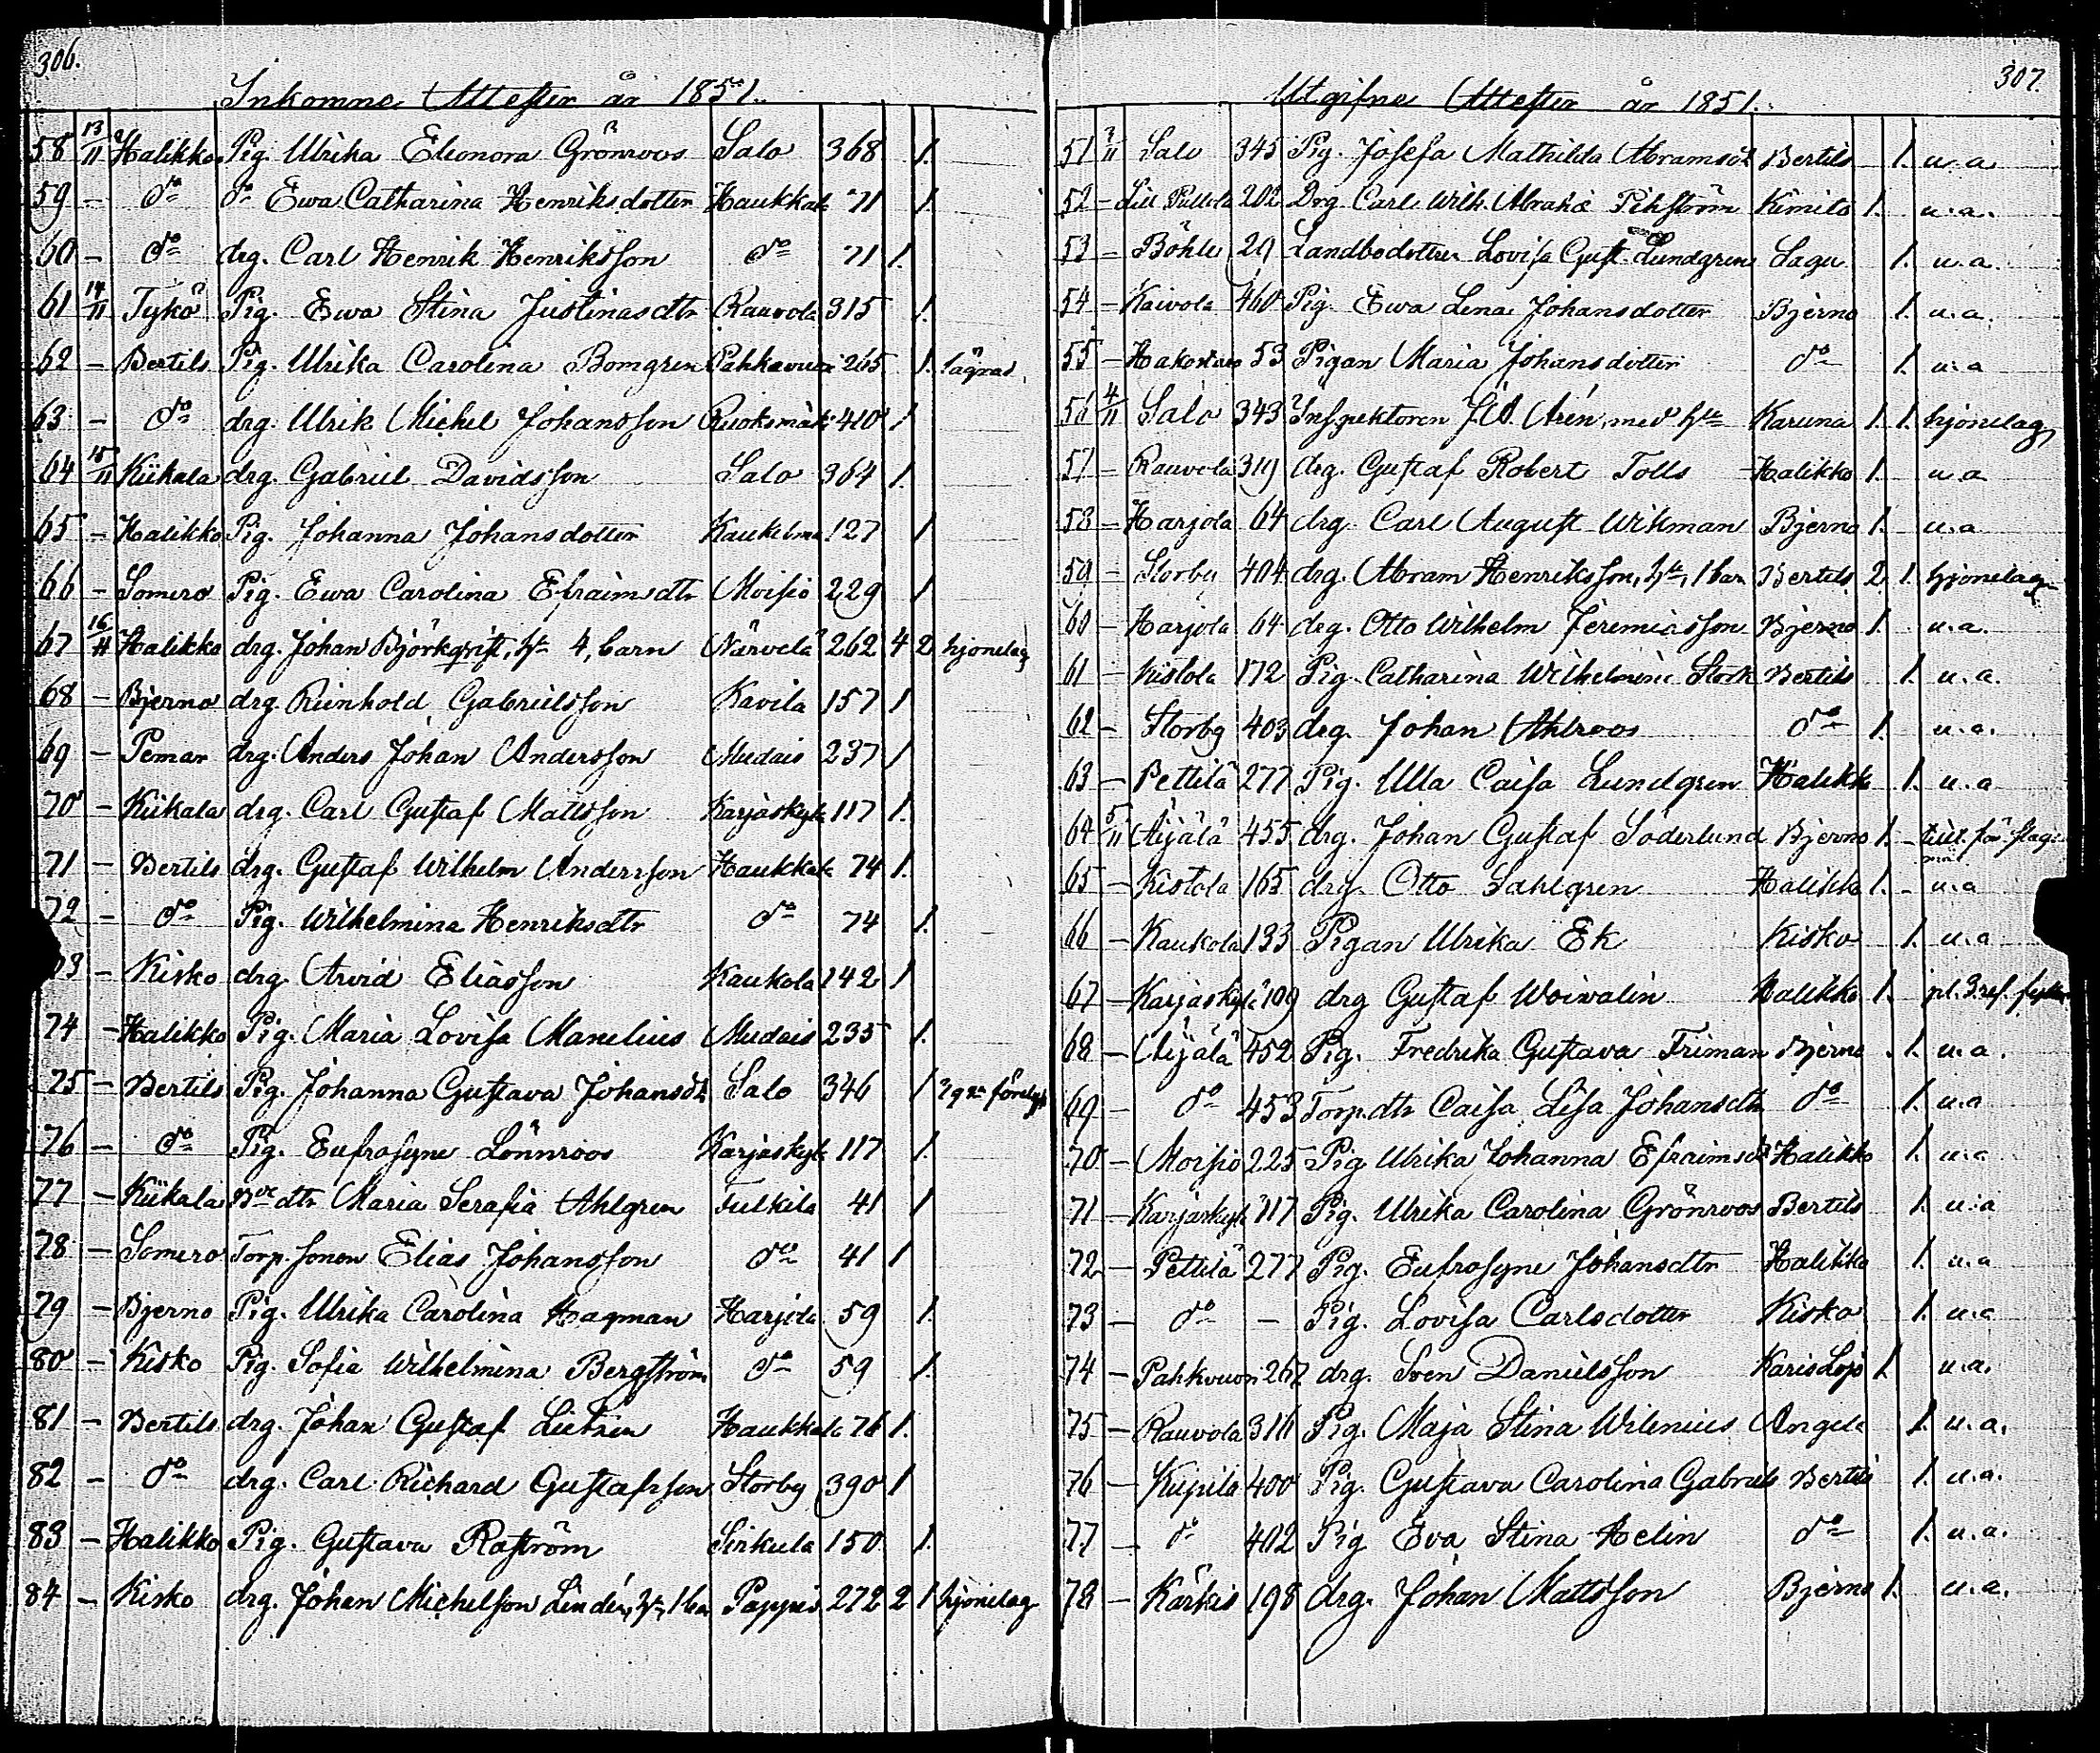 306.
Inkomne Attester år 1851.
58 13/11 Halikko Pig. Ulrika Eleonora Grönroos Salo 368 1.
59 - do do Ewa Catharina Henriksdotter Haukkala 71 1.
60 - do drg. Carl Henrik Henriksson do 71 1.
61 14/11 Tykö Pig. Ewa Stina Justinasdtr Rauvola 315 1.
62 - Bertils Pig. Ulrika Carolina Bomgren Pahkavuori 265 1.
63 - do drg. Ulrik Michel Johansson Ruoksmäki 410 1
64 15/11 Kiikala drg. Gabriel Davidsson Salo 364 1.
65 - Halikko Pig. Johanna Johansdotter Kaukelma 127 1
66 - Somero Pig. Ewa Carolina Efraimsdtr Moisio 229 1
67 16/11 Halikko drg. Johan Björkqvist, hu 4, barn Närvelä 262 4 2 hjonelag
68 - Bjerno drg. Reinhold Gabrielsson Kavila 157 1
69 - Pemar drg. Anders Johan Andersson Mudais 237 1
70 - Kiikala drg. Carl Gustaf Mattsson Karjaskylä 117 1.
71 - Bertils drg. Gustaf Wilhelm Andersson Haukkala 74 1.
72 - do Pig. Wilhelmina Henriksdtr do 74 1.
73 - Kisko drg. Arvid Eliasson Kaukola 142 1
74 - Halikko Pig. Maria Lovisa Manelius Mudais 235 1.
75 - Bertils Pig. Johanna Gustava Johansdr Salo 346 1
76 - do Pig. Eufrosyne Lönnroos Karjaskylä 117 1.
77 - Kiikala dtr Maria Serafia Ahlgren Tulkila 41 1
78 - Somero Torp. sonen Elias Johansson do 41 1
79 - Bjerno Pig. Ulrika Carolina Hagman Harjola 59 1.
80 - Kisko Pig. Sofia Wilhelmina Bergström do 59 1.
81 - Bertils drg. Johan Gustaf Haukkala 76 1.
82 - do drg. Carl Richard Gustafsson Storby 390 1
83 - Halikko Pig. Gustava Raström Sirkula 150 1.
84 - Kisko drg. Johan Michelson Lindén, hu, 1 ba Pappis 272 2 1 hjonelag
307.
Utgifne Attester år 1851.
51 3/11 Salo 345 Pig. Josefa Mathilda Abramsdr Bertils 1. u.a.
52 - Lill Pullola 202 Drg. Carl Wilh. Abrah: Pihström Kimito 1. u.a.
53 - Böhle 29 Landbodotter Lovisa Gust. Lundgren Sagu 1. u.a.
54 - Kaivola 460 Pig. Ewa Lena Johansdotter Bjerno 1. u.a.
55 - 53 Pigan Maria Johansdotter do 1. u.a
56 4/11 Salo 343 Inspektoren J.A. Arén, med hu Karuna 1. 1. hjonelag
57 - Rauvola 319 drg. Gustaf Robert Tolls Halikko 1. u.a
58 - Harjola 64 drg. Carl August Wikman Bjerno 1. u.a
59 - Storby 404 drg. Abram Henriksson, hu, 1 barn Bertils 2 1. hjonelag
60 - Harjola 64 drg. Otto Wilhelm Jeremiasson Bjerno 1. u.a.
61 - Kistola 172 Pig. Catharina Wilhelmina Stork Bertils 1. u.a.
62 - Storby 403 drg. Johan Ahlroos do 1. u.a.
63 - Pettilä 277 Pig. Ulla Caisa Lundgren Halikko 1. u.a
64 5/11 Aijälä 455 drg. Johan Gustaf Söderlund Bjerno 1.
65 - Kistola 165 drg. Otto Sahlgren Halikko 1. - u.a
66 - Kaukola 133 Pigan Ulrika Ek Kisko 1. u.a
67 - Karjaskylä 109 drg Gustaf Woivalin Halikko 1.
68 - Aijälä 452 Pig. Fredrika Gustava Friman Bjerno 1. u.a.
69 - do 453 Torp.dtr Caisa Lisa Johansdtr do 1. u.a
70 - Moisio 225 Pig Ulrika Johanna Efraimsdr Halikko 1. u.a
71 - Karjaskylä 117 Pig. Ulrika Carolina Grönroos Bertils 1. u.a
72 - Pettilä 277 Pig. Eufrosyne Johansdtr Halikko 1. u.a
73 - do - Pig. Lovisa Carlsdotter Kisko 1. u.a
74 - Pahkvuori 267 drg. Sven Danielsson Karislojo 1 u.a.
75 - Rauvola 316 Pig. Maja Stina Wilenius Angela 1. u.a.
76 - Kupila 400 Pig. Gustava Carolina Gabriels Bertils 1. u.a.
77 - do 402 Pig Eva Stina Helin do 1. u.a.
78 - Kärkis 198 drg. Johan Mattsson Bjerno 1. u.a.